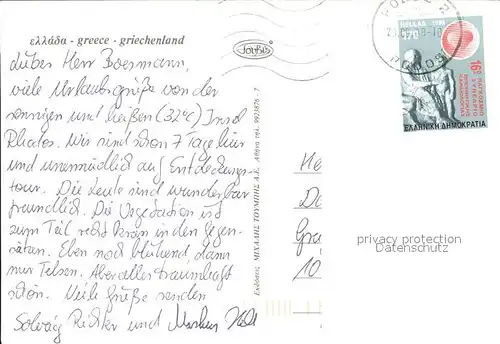 ελλάδα - greece - griechenland
Lieber Herr Boermann,
viele Urlaubsgrüße von der
sonnigen und heißen (32°C) Insel
Rhodos. Wir sind schon 7 Tage hier
und unermüdlich auf Entdeckungs-
tour. Die Leute sind wunderbar
freundlich. Die Vegetation ist
zum Teil recht in den Gegen-
sätzen. Eben noch blühend, dann
nur Felsen. Aber alles traumhaft
schön. Viele Grüße senden
Solveig Richter und Markus
Εκδόσεις ΜΙΧΑΛΗΣ ΤΟΥΜΠΗΣ Α.Ε. Αθήνα τηλ. 9923876 - 7
ΕΛΛΑΣ
HELLAS
170
16ο ΠΑΓΚΟΣΜΙΟ
ΣΥΝΕΔΡΙΟ
ΚΑΡΔΙΟΛΟΓΙΑΣ
ΕΛΛΗΝΙΚΗ ΔΗΜΟΚΡΑΤΙΑ
He
Do
Gra
10
privacy protection
Datenschutz